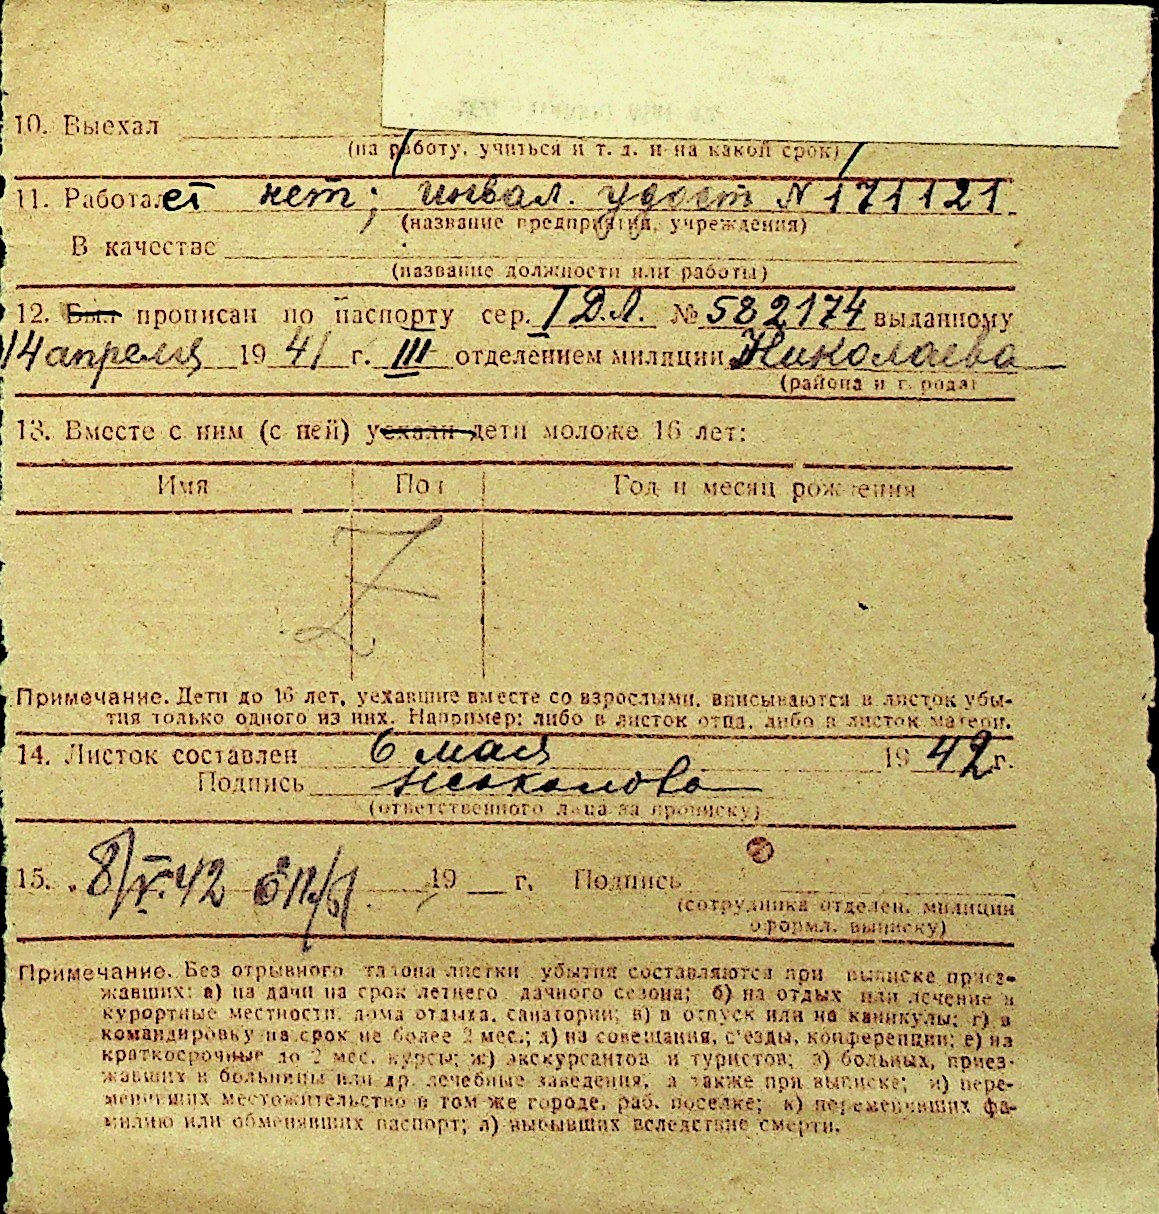 10. Выехал
(на работу, учиться и т. д. и на какой срок)
11. Работает нет; инвал. удост N 171121
(название предприятия, учреждения)
В качестве
(название должности или работы)
12. Был прописан по паспорту сер. I Д.Л. № 582174 выданному
14 апреля 1941 г. III отделением милиции Николаева
(района и города)
13. Вместе с ним (с ней) уехали дети моложе 16 лет:
Имя Пол Год и месяц рождения
Z
Примечание. Дети до 16 лет, уехавшие вместе со взрослыми, вписываются в листок убы-
тия только одного из них. Например: либо в листок отца, либо в листок матери.
14. Листок составлен 6 мая 1942 г.
Подпись
(ответственного лица за прописку)
15. 8/V.42 19 г. Подпись
(сотрудника отделен. милиции
оформл. выписку)
Примечание. Без отрывного талона листки убытия составляются при выписке приез-
жавших: а) на дачи на срок летнего дачного сезона; б) на отдых или лечение в
курортные местности, дома отдыха, санатории; в) в отпуск или на каникулы; г) в
командировку на срок не более 2 мес.; д) на совещания, съезды, конференции; е) на
краткосрочные до 2 мес. курсы; ж) экскурсантов и туристов; з) больных, приез-
жавших в больницы или др. лечебные заведения, а также при выписке; и) пере-
менивших местожительство в том же городе, раб. поселке; к) переменивших фа-
милию или обменявших паспорт; л) выбывших вследствие смерти.